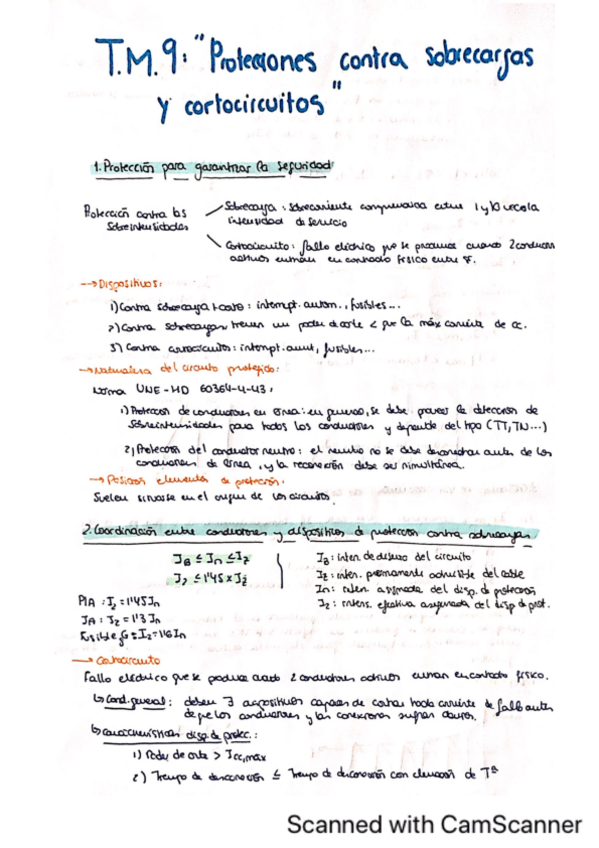 T.M.9: "Protecciones contra sobrecargas
y cortocircuitos"
1. Protección para garantizar la seguridad
Protección contra las
sobreintensidades
Sobrecarga: sobrecorriente comprendida entre 1 y 10 veces la
intensidad de servicio
Cortocircuito: fallo eléctrico que se produce cuando 2 conduct
activos entran en contacto físico entre sí.
→ Dispositivos:
1) Contra sobrecarga + corto: interrupt. autom., fusibles...
2) Contra sobrecargas tienen un poder de corte < que la máx corriente de cc.
3) Contra cortocircuitos: interrupt. aut, fusibles...
→ Naturaleza del circuito protegido:
Norma UNE-HD 60364-4-43:
1) Protección de conductores en línea: en general, se debe prever la detección de
sobreintensidades para todos los conductores y depende del tipo (TT, TN...)
2) Protección del conductor neutro: el neutro no se debe desconectar antes de los
conductores de línea, y la reconexión debe ser simultánea.
→ Posición elementos de protección.
Suelen situarse en el origen de los circuitos.
2. Coordinación entre conductores y dispositivos de protección contra sobrecargas.
I_B ≤ I_n ≤ I_Z
I_2 ≤ 1'45 × I_Z
I_B: inten. de diseño del circuito
I_Z: inten. permanente admisible del cable
In: inten. asignada del disp. de protección
I_2: intens. efectiva asegurada del disp de prot.
PIA: I_2 = 1'45 I_n
IA: I_2 = 1'3 I_n
Fusible gG: I_2 = 1'6 In
→ Cortocircuito
Fallo eléctrico que se produce cuando 2 conductores activos entran en contacto físico.
↳ Cond. general: deben dispositivos capaces de cortar toda corriente de fallo antes
de que los conductores y las conexiones sufran daños.
↳ Características disp. de protec.:
1) Poder de corte > I_cc,max
2) Tiempo de desconexión ≤ Tiempo de desconexión con elevación de Tª
Scanned with CamScanner